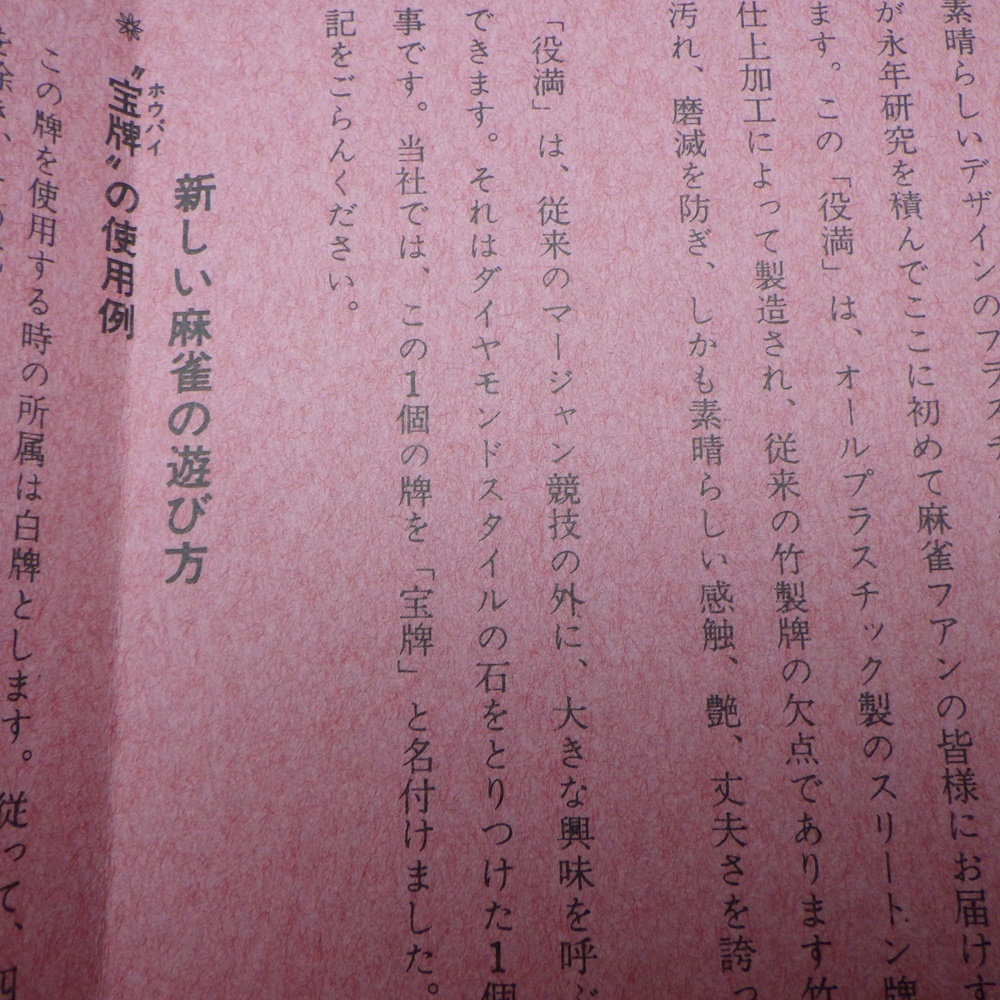 素晴らしいデザインのプラスチ
が永年研究を積んでここに初めて麻雀フアンの皆様にお届けす
ます。この「役満」は、オールプラスチック製のスリートン牌
仕上加工によって製造され、従来の竹製牌の欠点であります竹
汚れ、磨滅を防ぎ、しかも素晴らしい感触、艶、丈夫さを誇っ
「役満」は、従来のマージャン競技の外に、大きな興味を呼ぶ
できます。それはダイヤモンドスタイルの石をとりつけた1個
事です。当社では、この1個の牌を「宝牌」と名付けました。
記をごらんください。
新しい麻雀の遊び方
ホウパイ
❀〝宝牌〟の使用例
この牌を使用する時の所属は白牌とします。従って、四